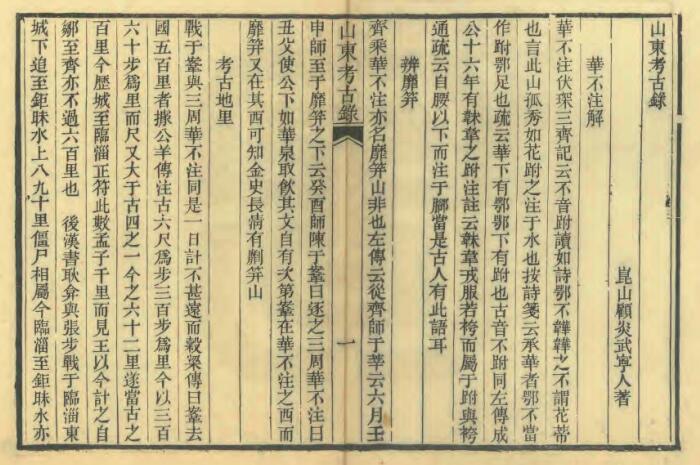 山東考古錄
崑山顧炎武寧人著
華不注解
華不注伏琛三齊記云不音跗讀如詩鄂不韡韡之不謂花蒂
也言此山孤秀如花跗之注于水也按詩箋云承華者鄂不當
作跗鄂足也疏云華下有鄂鄂下有跗也古音不跗同左傳成
公十六年有韎韋之跗注註云韎韋戎服若袴而屬于跗與袴
通疏云自腰以下而注于腳當是古人有此語耳
辨靡笄
齊乘華不注亦名靡笄山非也左傳云從齊師于莘云六月壬
山東考古錄
一
申師至于靡笄之下云癸酉師陳于鞌曰逐之三周華不注曰
丑父使公下如華泉取飲其文自有次第鞌在華不注之西而
靡笄又在其西可知金史長淸有劘笄山
考古地里
戰于鞌與三周華不注同是一日計不甚遠而穀梁傳曰鞌去
國五百里者據公羊傳注古六尺爲步三百步爲里今以三百
六十步爲里而尺又大于古四之一今之六十二里遂當古之
百里今歷城至臨淄正符此數孟子千里而見王以今計之自
鄒至齊亦不過六百里也 後漢書耿弇與張步戰于臨淄東
城下追至鉅昧水上八九十里僵尸相屬今臨淄至鉅昧水亦